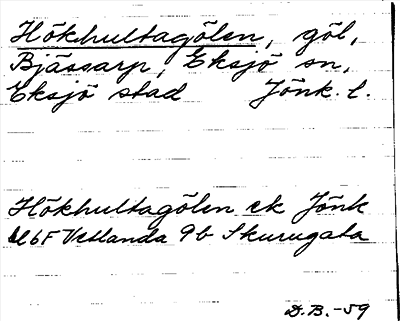 Hökhultagölen, göl,
Bjässarp, Eksjö sn,
Eksjö stad Jönk. l.
Hökhultagölen ek Jönk
6F Vetlanda 9b Skurugata
D.B.-59